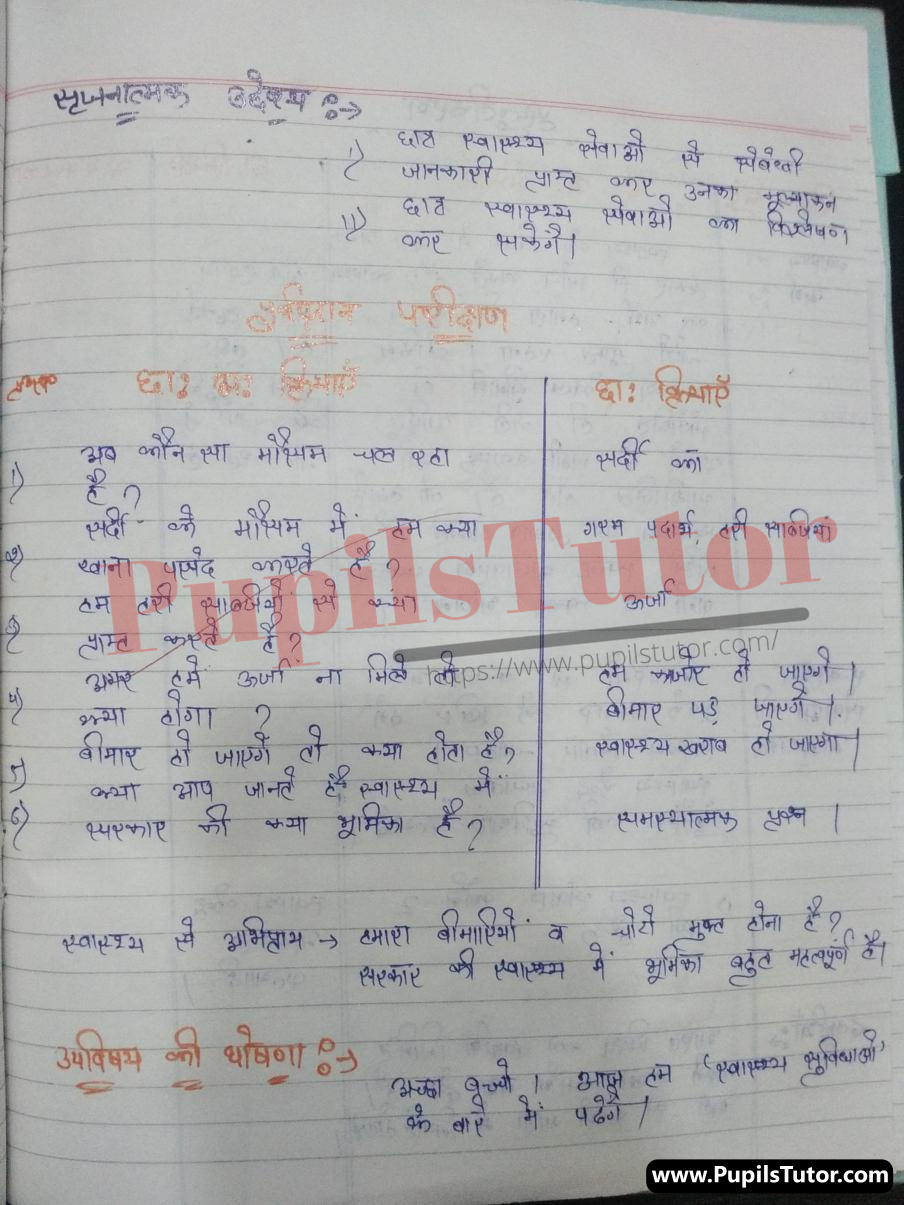 सृजनात्मक उद्देश्य :→
1) छात्र स्वास्थ्य सेवाओं से संबंधी
जानकारी प्राप्त कर उनका मूल्यांकन
11) छात्र स्वास्थ्य सेवाओं का विश्लेषण
कर सकेंगे।
पूर्वज्ञान परीक्षण
क्रमांक छा: अ: क्रियाएँ छा: क्रियाएँ
1) अब कौन सा मौसम चल रहा सर्दी का
है ?
2) सर्दी के मौसम में हम क्या गरम पदार्थ, हरी सब्जियां
खाना पसंद करते है ?
3) हम हरी सब्जीयों से क्या ऊर्जा
प्राप्त करते है ?
4) अगर हमें ऊर्जा ना मिले तो हम कमजोर हो जाएगें।
क्या होगा ? बीमार पड़ जाएगें।
5) बीमार हो जाएगें तो क्या होता है? स्वास्थ्य खराब हो जाएगा।
6) क्या आप जानते है स्वास्थ्य में
सरकार की क्या भूमिका है ? समस्यात्मक प्रश्न।
स्वास्थ्य से अभिप्राय → हमारा बीमारियों व चोटो मुक्त होना है ?
सरकार की स्वास्थ्य में भूमिका बहुत महत्वपूर्ण है।
उपविषय की घोषणा :→
अच्छा बच्चो। आज हम 'स्वास्थ्य सुविधाओं'
के बारे में पढेगें।
PupilsTutor
https://www.pupilstutor.com/
www.PupilsTutor.com